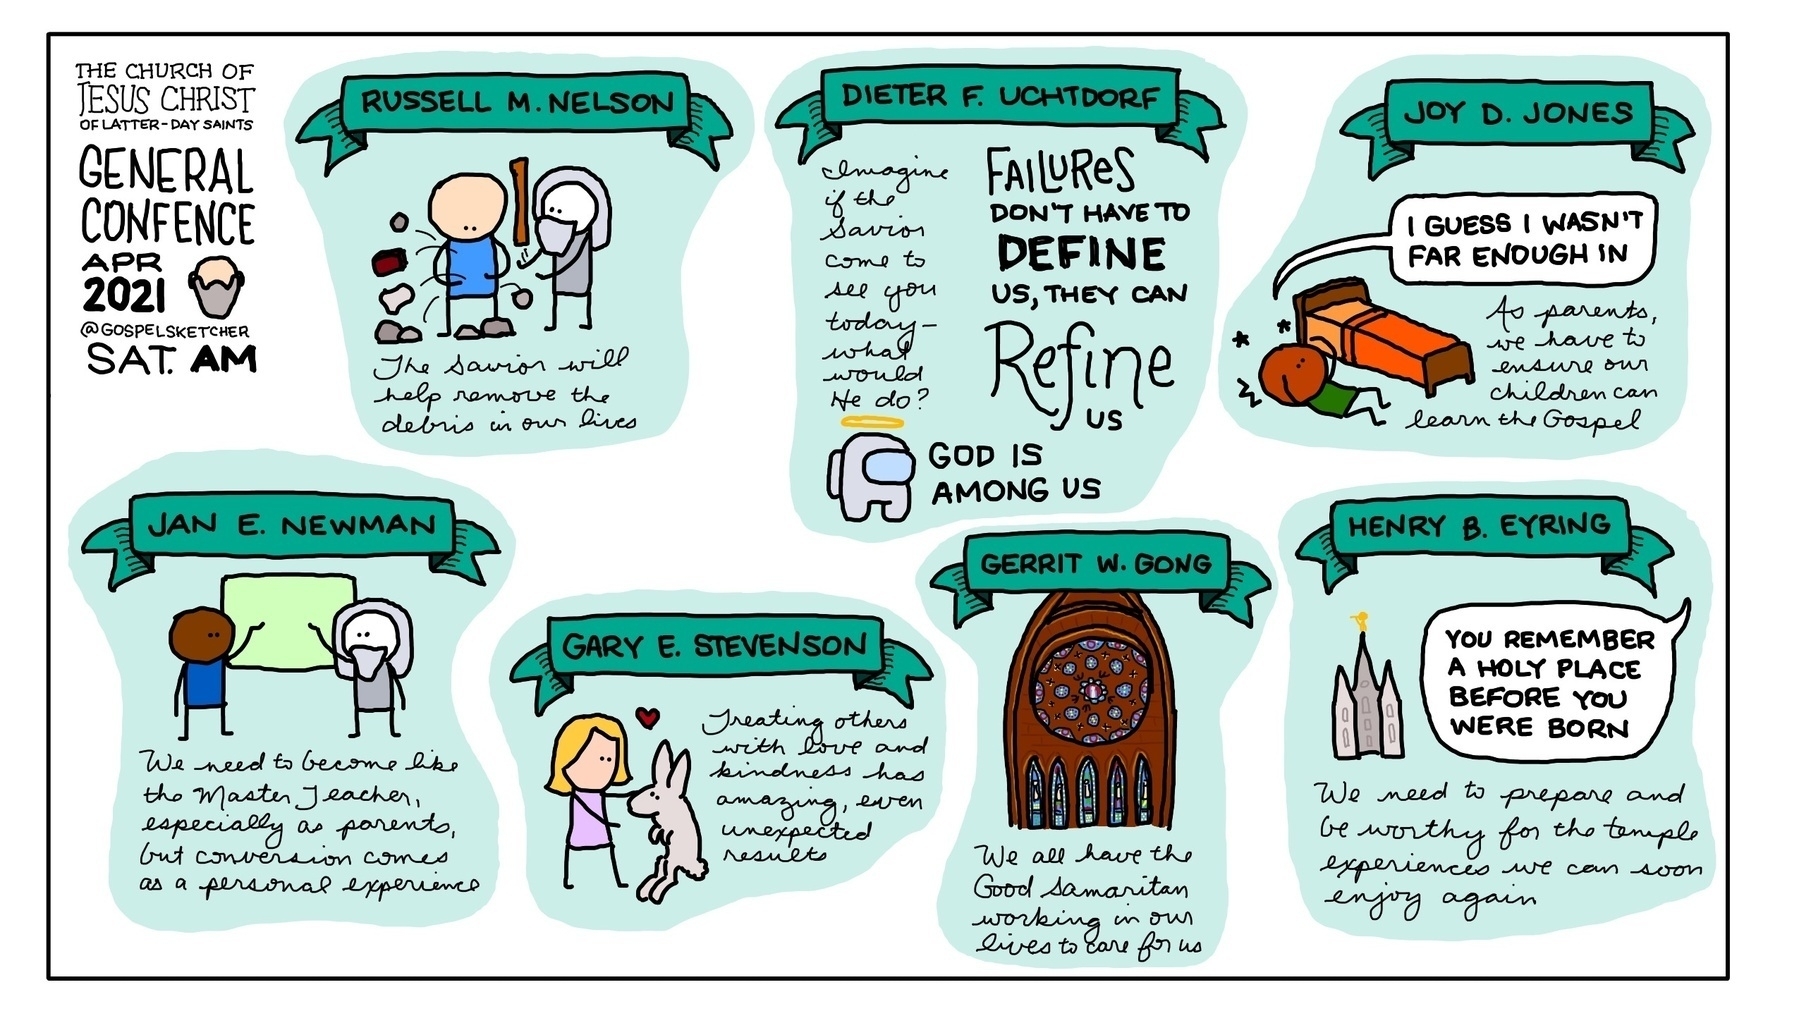 THE CHURCH OF
JESUS CHRIST
OF LATTER-DAY SAINTS
GENERAL
CONFENCE
APR
2021
@GOSPELSKETCHER
SAT. AM
RUSSELL M. NELSON
The Savior will
help remove the
debris in our lives
DIETER F. UCHTDORF
Imagine
if the
Savior
come to
see you
today—
what
would
He do?
FAILURES
DON'T HAVE TO
DEFINE
US, THEY CAN
Refine
US
GOD IS
AMONG US
JOY D. JONES
I GUESS I WASN'T
FAR ENOUGH IN
As parents,
we have to
ensure our
children can
learn the Gospel
JAN E. NEWMAN
We need to become like
the Master Teacher,
especially as parents,
but conversion comes
as a personal experience
GARY E. STEVENSON
Treating others
with love and
kindness has
amazing, even
unexpected
results
GERRIT W. GONG
We all have the
Good Samaritan
working in our
lives to care for us
HENRY B. EYRING
YOU REMEMBER
A HOLY PLACE
BEFORE YOU
WERE BORN
We need to prepare and
be worthy for the temple
experiences we can soon
enjoy again